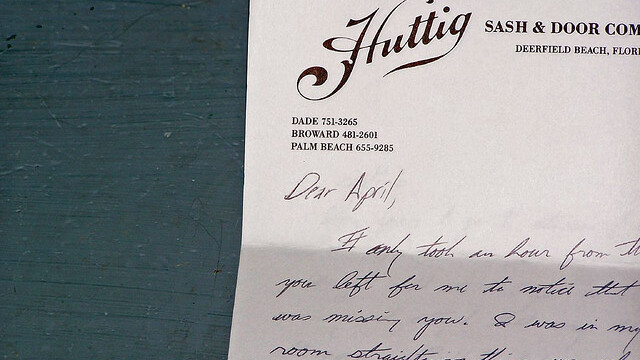 Huttig SASH & DOOR COM
DEERFIELD BEACH, FLORI
DADE 751-3265
BROWARD 481-2601
PALM BEACH 655-9285
Dear April,
It only took an hour from th
you left for me to notice that
was missing you. I was in my
room